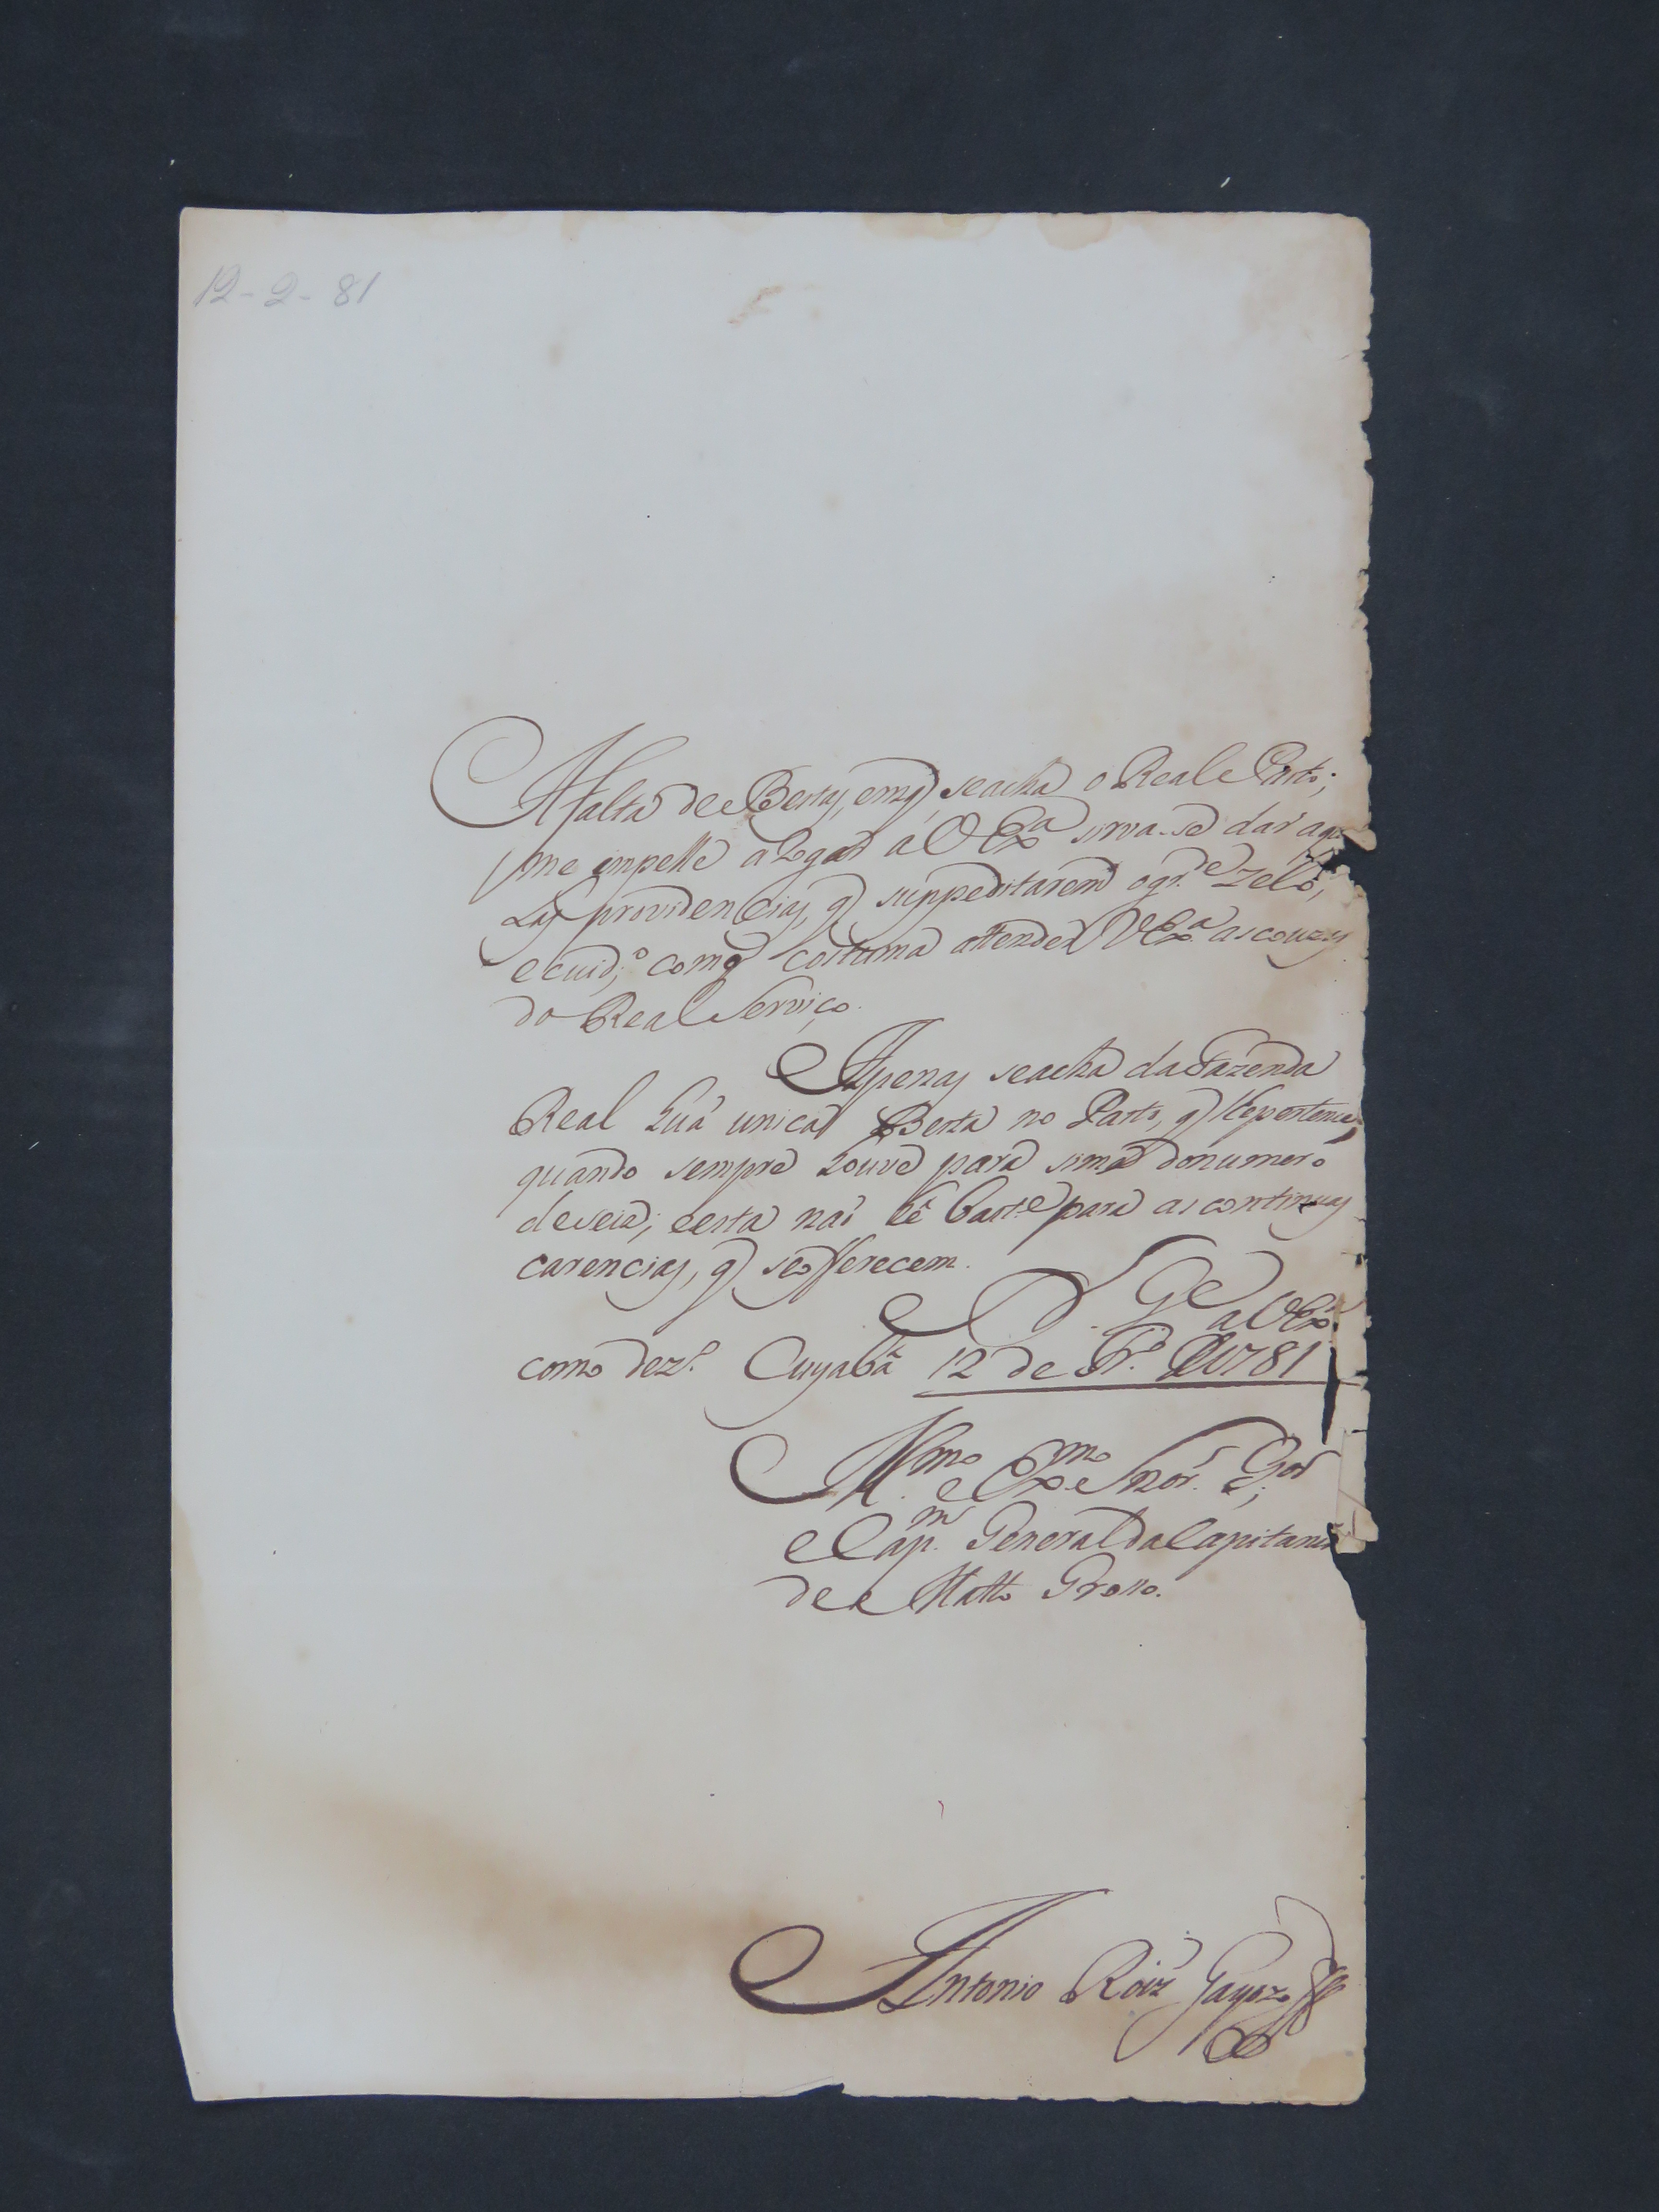 12-2-81
A falta de Bestas, em q̃ se acha o Real Pasto;
me impelle a rogar á V Exa sirva-se dar aque
Las providencias, q̃ suppeditarem o gr.de zelo,
e cuid.o com q̃ costuma attender V Exa as couzas
do Real Serviço.
Apenas se acha da Fazenda
Real huã unica Besta no Pasto, q̃ lhe pertence,
quando sempre houve para sima do numero
de seis; e esta naõ hê bast.e para as continuas
carencias, q̃ se offerecem.
D. G.e a V Exa.
como dez.o Cuyabâ 12 de Fr.o de 1781
Ill.mo e Ex.mo Snor. G.or
e Cap.m General da Capitania
de Matto Grosso.
Antonio Roiz Gayozo